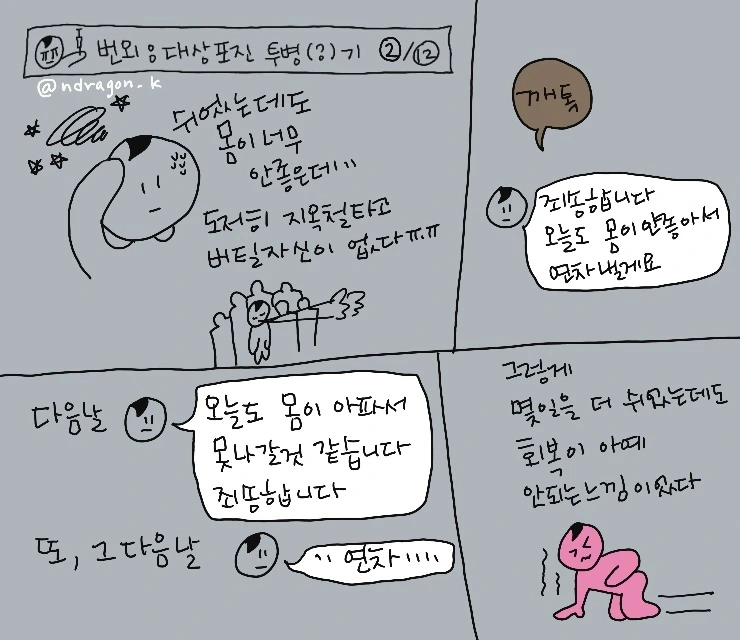 번외 : 대상포진 투병(?)기 ②/⑫
@ndragon.k
쉬었는데도
몸이 너무
안좋은데..
도저히 지옥철타고
버틸자신이 없다ㅠ.ㅠ
깨톡
죄송합니다
오늘도 몸이 안좋아서
연차낼게요
다음날
오늘도 몸이 아파서
못나갈것 같습니다
죄송합니다
또, 그 다음날
.. 연차....
그렇게
몇일을 더 쉬었는데도
회복이 아예
안되는느낌이었다